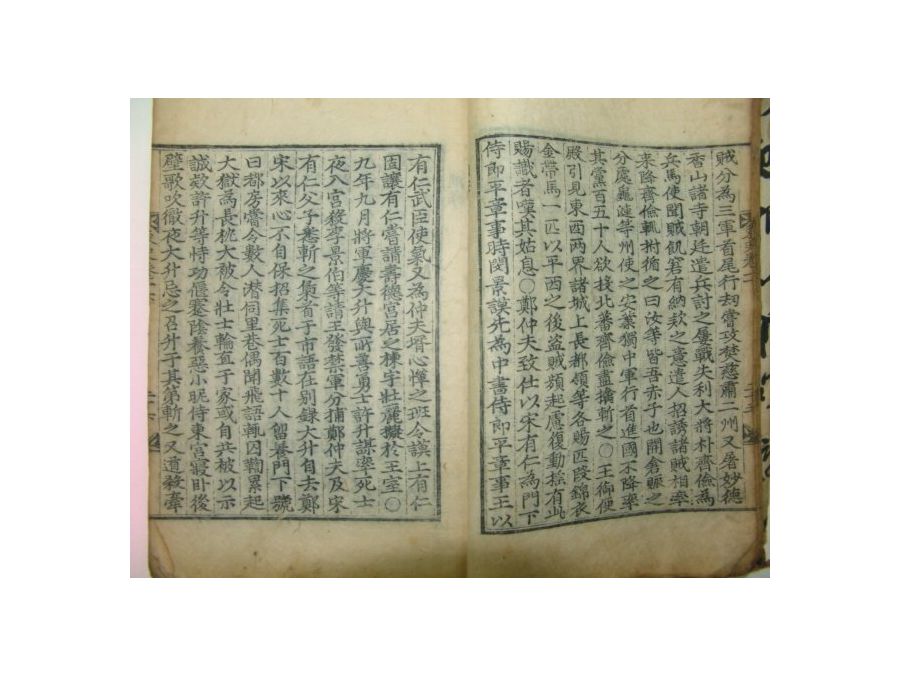 賊分為三軍首尾行刼嘗攻焚慈肅二州又屠妙德
香山諸寺朝廷遣兵討之屢戰失利大將朴齊儉為
兵馬使聞賊飢窘有納欵之意遣人招誘諸賊相率
來降齊儉輒拊循之曰汝等皆吾赤子也開倉賑之
分處龜漣等州使之安業獨中軍行首進國不降率
其黨百五十人欲投北蕃齊儉盡擒斬之○王御便
殿引見東西兩界諸城上長都領等各賜匹段錦衣
金帶馬一匹以平西之後盗賊頻起慮復動搖有此
賜識者嘆其姑息○鄭仲夫致仕以宋有仁為門下
侍郎平章事時閔景謨先為中書侍郎平章事王以
有仁武臣使氣又為仲夫壻心憚之班令謨上有仁
固讓有仁嘗請壽德宮居之棟宇壯麗擬於王室○
九年九月將軍慶大升與所善勇士許升謀率死士
夜入宮殺李景伯等請王發禁軍分捕鄭仲夫及宋
有仁父子悉斬之梟首于市語在別錄大升自去鄭
宋以來心不自保招集死士百數十人留養門下號
曰都房嘗令數人潛伺里巷偶聞飛語輒囚鞫累起
大獄為長枕大被令壯士輪直于家或自共被以示
誠欵許升等恃功偃蹇陰養惡小昵侍東宮寢卧後
壁歌吹徹夜大升忌之召升于其第斬之又道殺牽